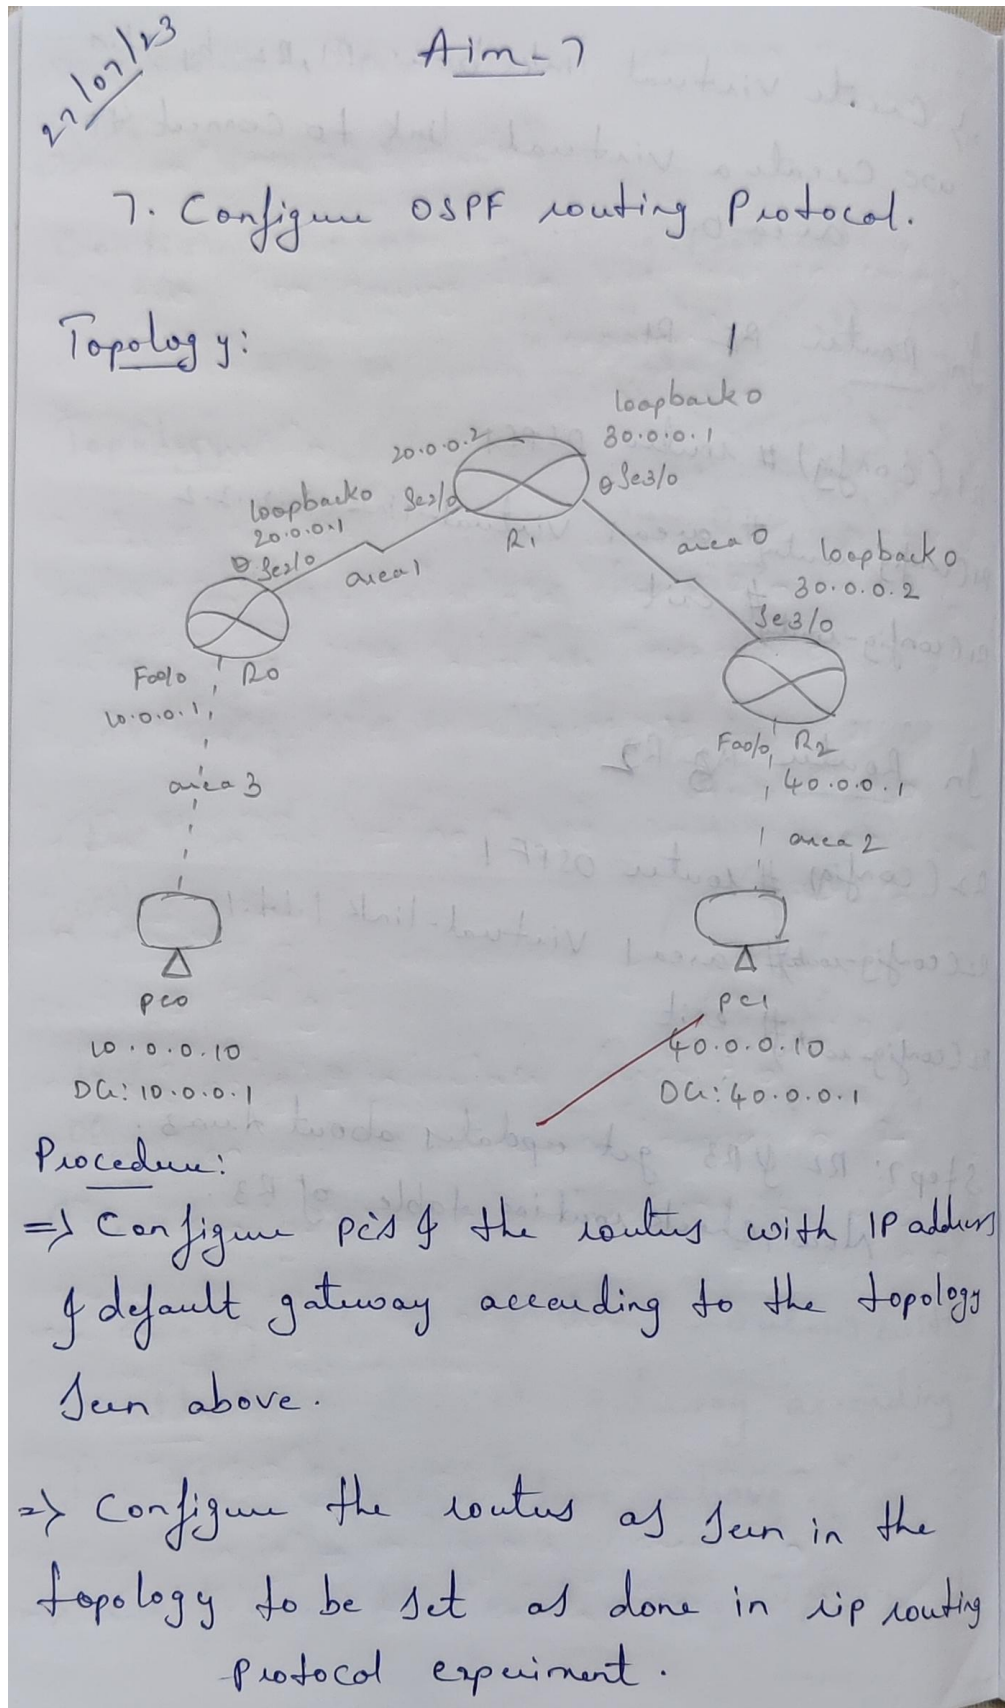 27/07/23
Aim-7
7. Configure OSPF routing Protocol.
Topology:
loopback 0
30.0.0.1
20.0.0.2
Se3/0
Se2/0
R1
loopback0
20.0.0.1
Se2/0
area 1
area 0
loopback 0
30.0.0.2
Se3/0
Fa0/0
R0
10.0.0.1
Fa0/0
R2
40.0.0.1
area 3
area 2
PC0
PC1
10.0.0.10
40.0.0.10
DG: 10.0.0.1
DG: 40.0.0.1
Procedure:
=> Configure pc's & the routers with IP address
& default gateway according to the topology
seen above.
=> Configure the routers as seen in the
topology to be set as done in rip routing
protocol experiment.